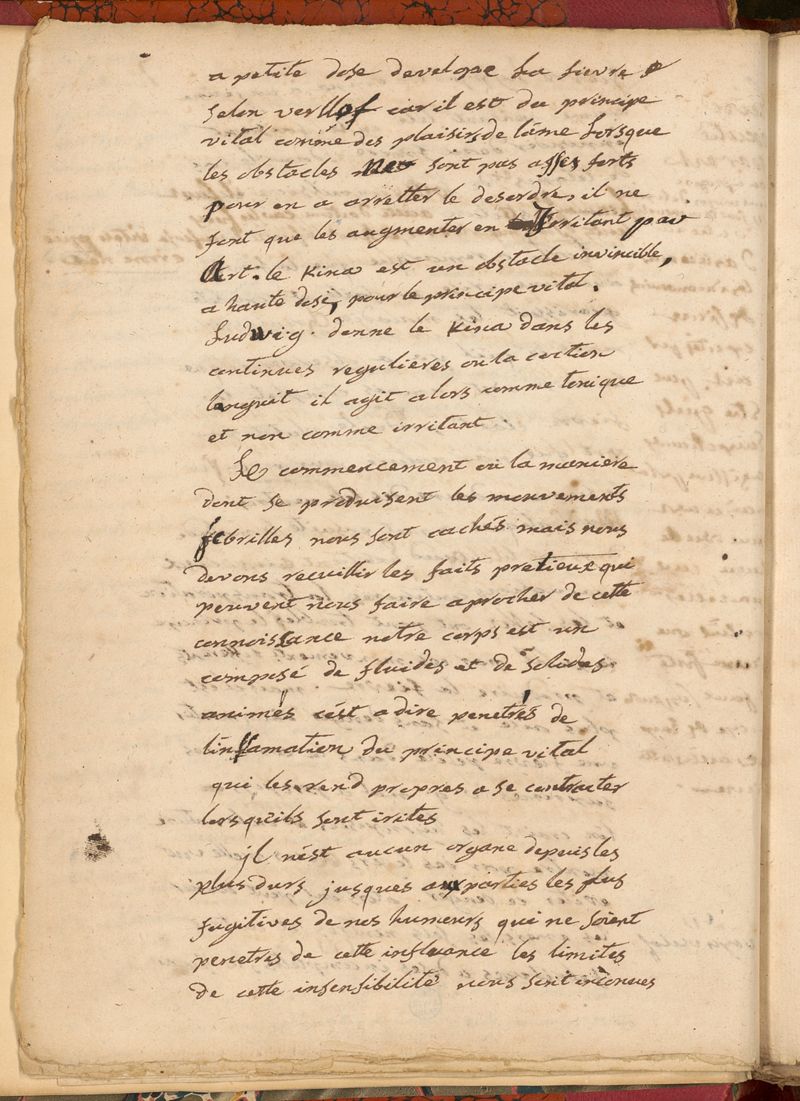 a petite dose develope la fievre
selon verllof car il est du principe
vital comme des plaisirs de lâme lorsque
les obstacles ne sont pas asses forts
pour en a arretter le desordre, il ne
font que les augmenter en Irritant par
Art. le Kina est un obstacle invincible,
a haute dose, pour le principe vital.
Ludwig. donne le Kina dans les
continues regulieres ou la coction
languit il agit alors comme tonique
et non comme irritant.
Le commencement ou la maniere
dont se produisent les mouvements
febrilles nous sont cachés mais nous
devons recuillir les faits pretieux qui
peuvent nous faire aprocher de cette
connoissance notre corps est un
composé de fluides et de solides
animés cést a dire penetrés de
du principe vital
qui les rend propres a se contracter
lorsquils sont irites
jl nést aucun organe depuis les
plus durs jusques aux parties les plus
fugitives de nos humeurs qui ne soient
penetres de cette influance les limites
de cette insensibilité nous sont inconues